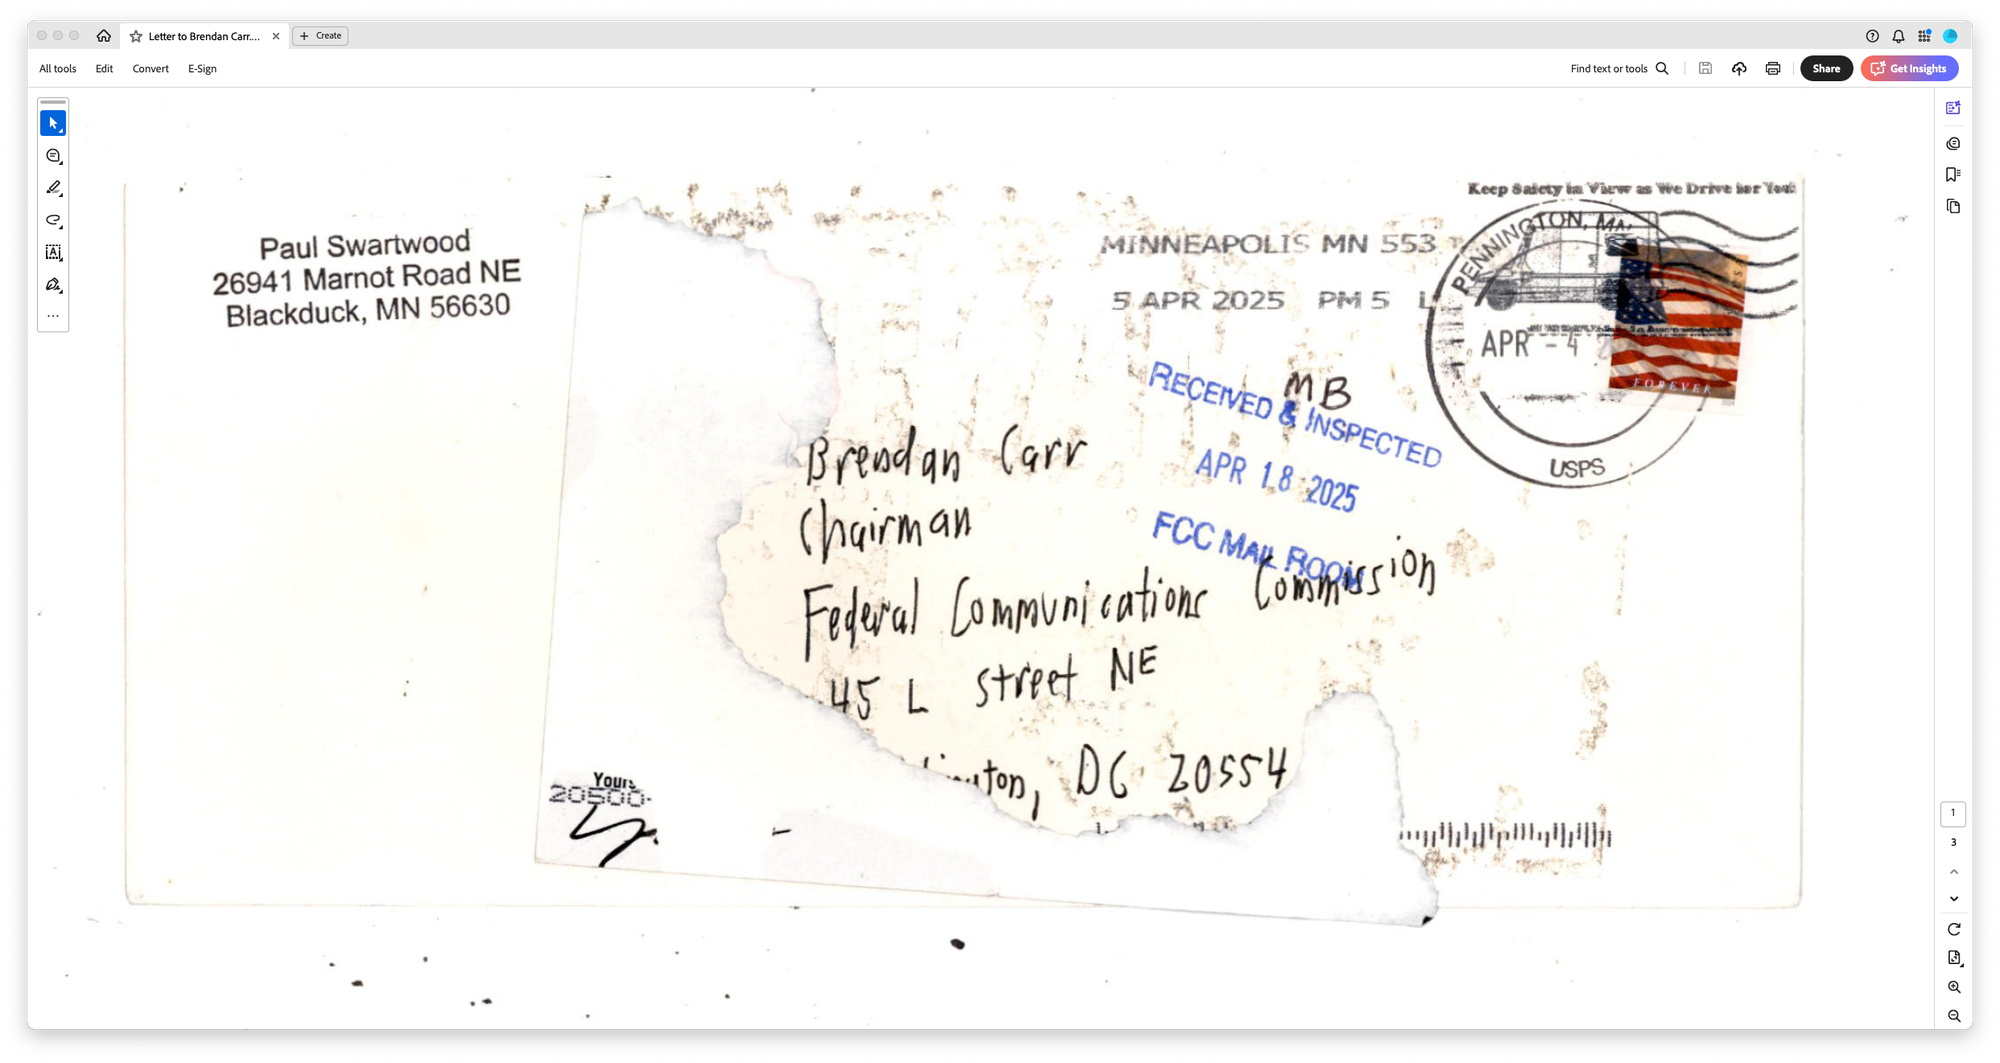 Letter to Brendan Carr....
Create
All tools
Edit
Convert
E-Sign
Find text or tools
Share
Get Insights
Keep Safety in View as We Drive for You!
Paul Swartwood
26941 Marnot Road NE
Blackduck, MN 56630
MINNEAPOLIS MN 553
5 APR 2025 PM 5 L
PENNINGTON, MN.
APR - 4
USPS
FOREVER
MB
RECEIVED & INSPECTED
APR 18 2025
FCC MAIL ROOM
Brendan Carr
Chairman
Federal Communications Commission
45 L street NE
ton, DC 20554
Yours
20500-
1
3